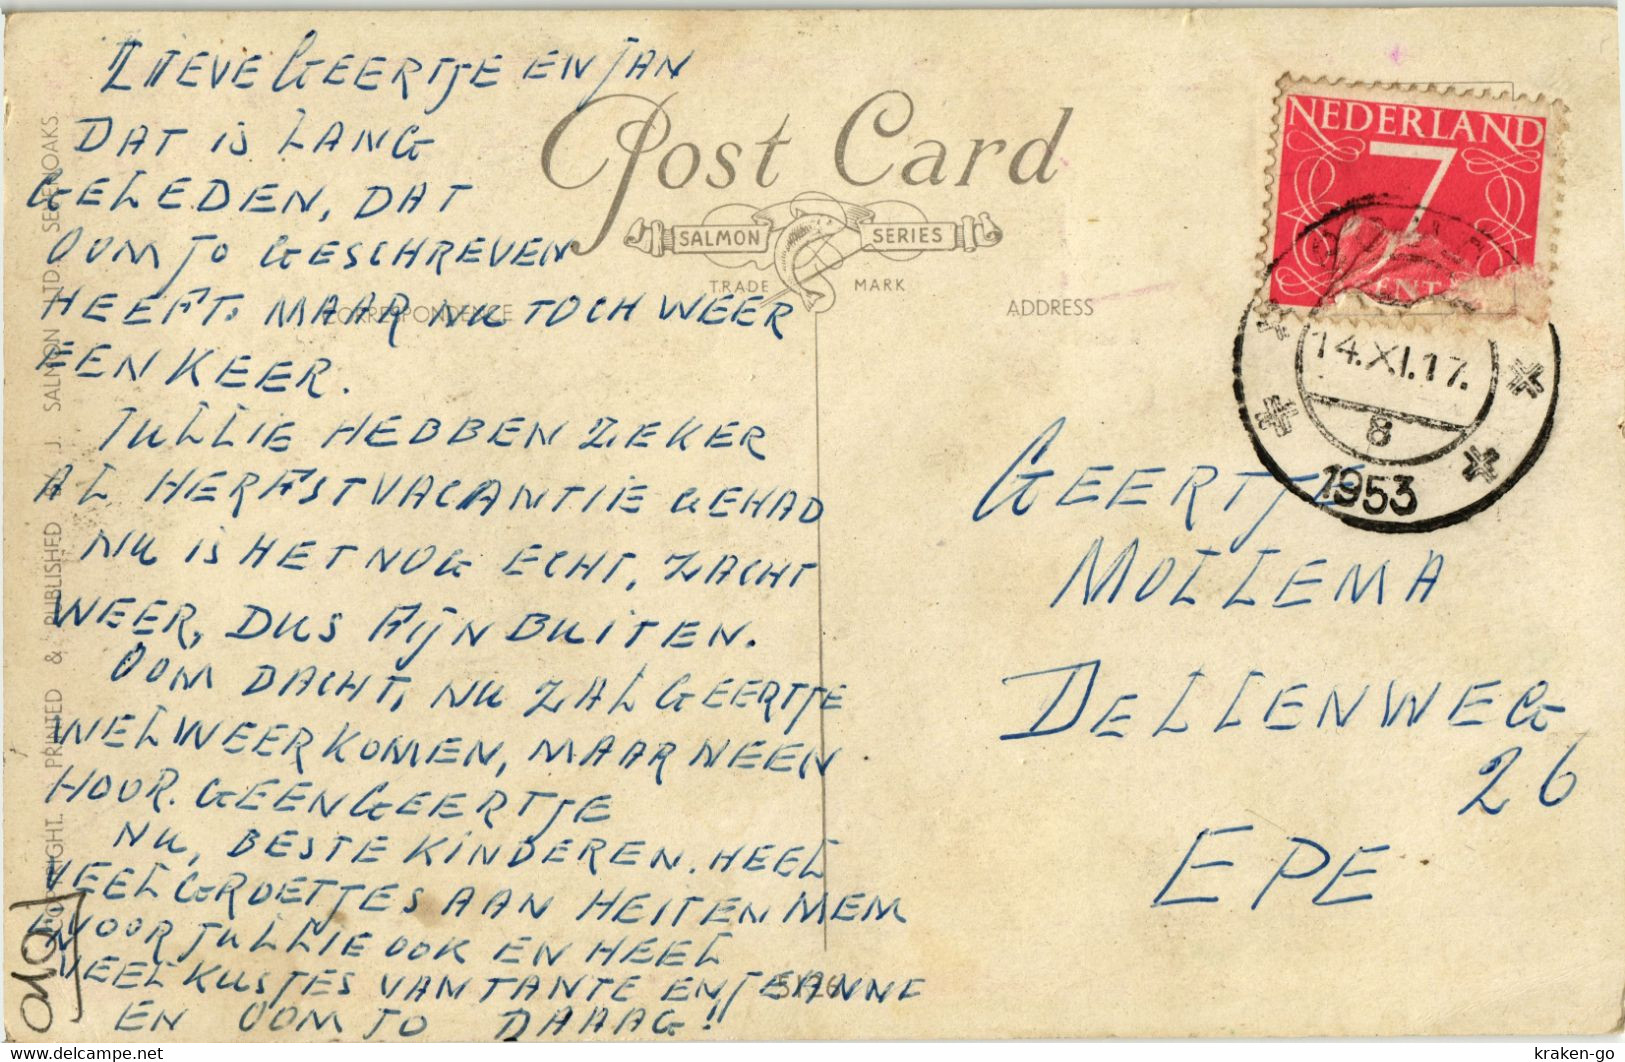 LIEVE GEERTJE EN JAN
DAT IS LANG
GELEDEN, DAT
OOM JO GESCHREVEN
HEEFT. MAAR NU TOCH WEER
EEN KEER.
JULLIE HEBBEN ZEKER
AL HERFSTVACANTIE GEHAD
NU IS HET NOG ECHT, ZACHT
WEER, DUS FIJN BUITEN.
OOM DACHT, NU ZAL GEERTJE
WEL WEER KOMEN, MAAR NEEN
HOOR. GEEN GEERTJE
NU, BESTE KINDEREN. HEEL
VEEL GROETJES AAN HEIT EN MEM
EN VOOR JULLIE OOK EN HEEL
VEEL KUSJES VAN TANTE EN JEANNE
EN OOM JO DAAAG!!
Post Card
SALMON SERIES
TRADE MARK
CORRESPONDENCE
ADDRESS
COPYRIGHT. PRINTED & PUBLISHED BY J. SALMON LTD. SEVENOAKS.
NEDERLAND
7
CENT
14.XI.17.
8
1953
GEERTJE
MOLLEMA
DELLENWEG
26
EPE
kraken-go